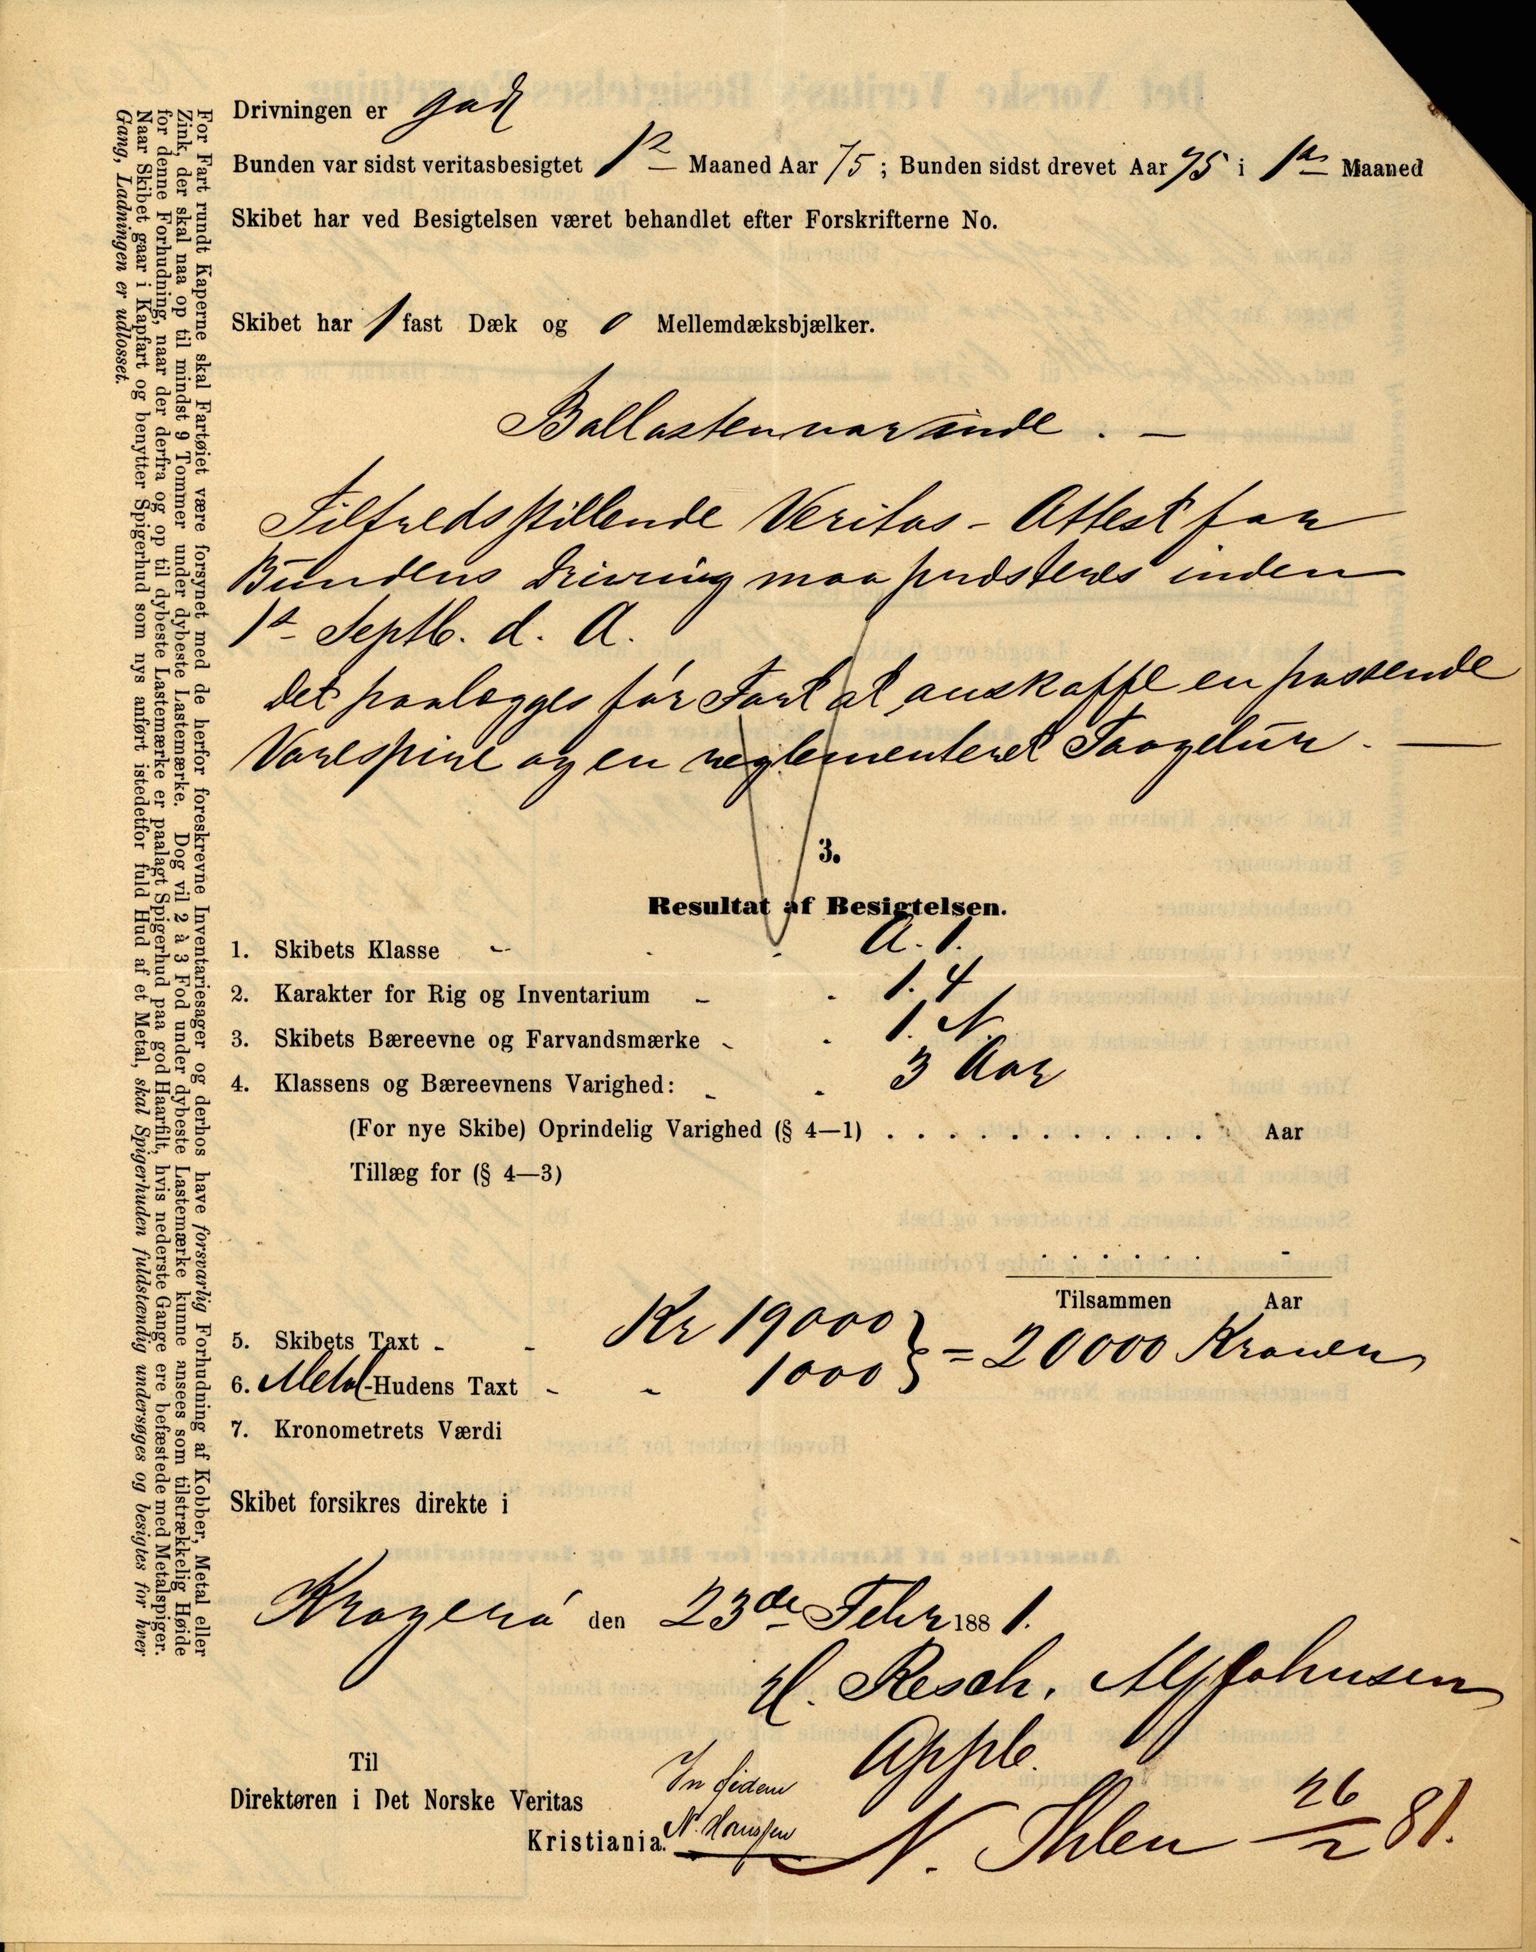 Drivningen er god
Bunden var sidst veritasbesigtet 1ste Maaned Aar 75; Bunden sidst drevet Aar 75 i 1ste Maaned
Skibet har ved Besigtelsen været behandlet efter Forskrifterne No.
Skibet har 1 fast Dæk og 0 Mellemdæksbjælker.
Ballasten var inde. —
Tilfredsstillende Veritas-Attest for
Bundens Drivning maa præsteres inden
1st Septb. d. A.
Det paalægges før Fart at anskaffe en passende
Varespire og en reglementeret Taagelur. —
3.
Resultat af Besigtelsen.
1. Skibets Klasse - - - A. 1.
2. Karakter for Rig og Inventarium - - 1. 4
3. Skibets Bæreevne og Farvandsmærke - - 1. N.
4. Klassens og Bæreevnens Varighed: - - 3 Aar
(For nye Skibe) Oprindelig Varighed (§ 4—1) . . . . . . . . . . . . Aar
Tillæg for (§ 4—3)
. . . . . . -
Tilsammen Aar
5. Skibets Taxt - - Kr 19000 } = 20000 Kroner
6. Metal-Hudens Taxt - - 1000
7. Kronometrets Værdi
Skibet forsikres direkte i
Kragerø den 23de Febr 1881.
H. Resch. Johnsen
Appb.
Til
Direktøren i Det Norske Veritas
Kristiania.
In fidem
N. Hanssen
N. Ihlen 26/2 81.
For Fart rundt Kaperne skal Fartøiet være forsynet med de herfor foreskrevne Inventariesager og derhos have forsvarlig Forhudning af Kobber, Metal eller
Zink, der skal naa op til mindst 9 Tommer under dybeste Lastemærke. Dog vil 2 à 3 Fod under dybeste Lastemærke kunne ansees som tilstrækkelig Høide
for denne Forhudning, naar der derfra og op til dybeste Lastemærke er paalagt Spigerhud paa god Haarfilt, hvis nederste Gange ere befæstede med Metalspiger.
Naar Skibet gaar i Kapfart og benytter Spigerhud som nys anført istedetfor fuld Hud af et Metal, skal Spigerhuden fuldstændig undersøges og besigtes for hver
Gang, Ladningen er udlosset.